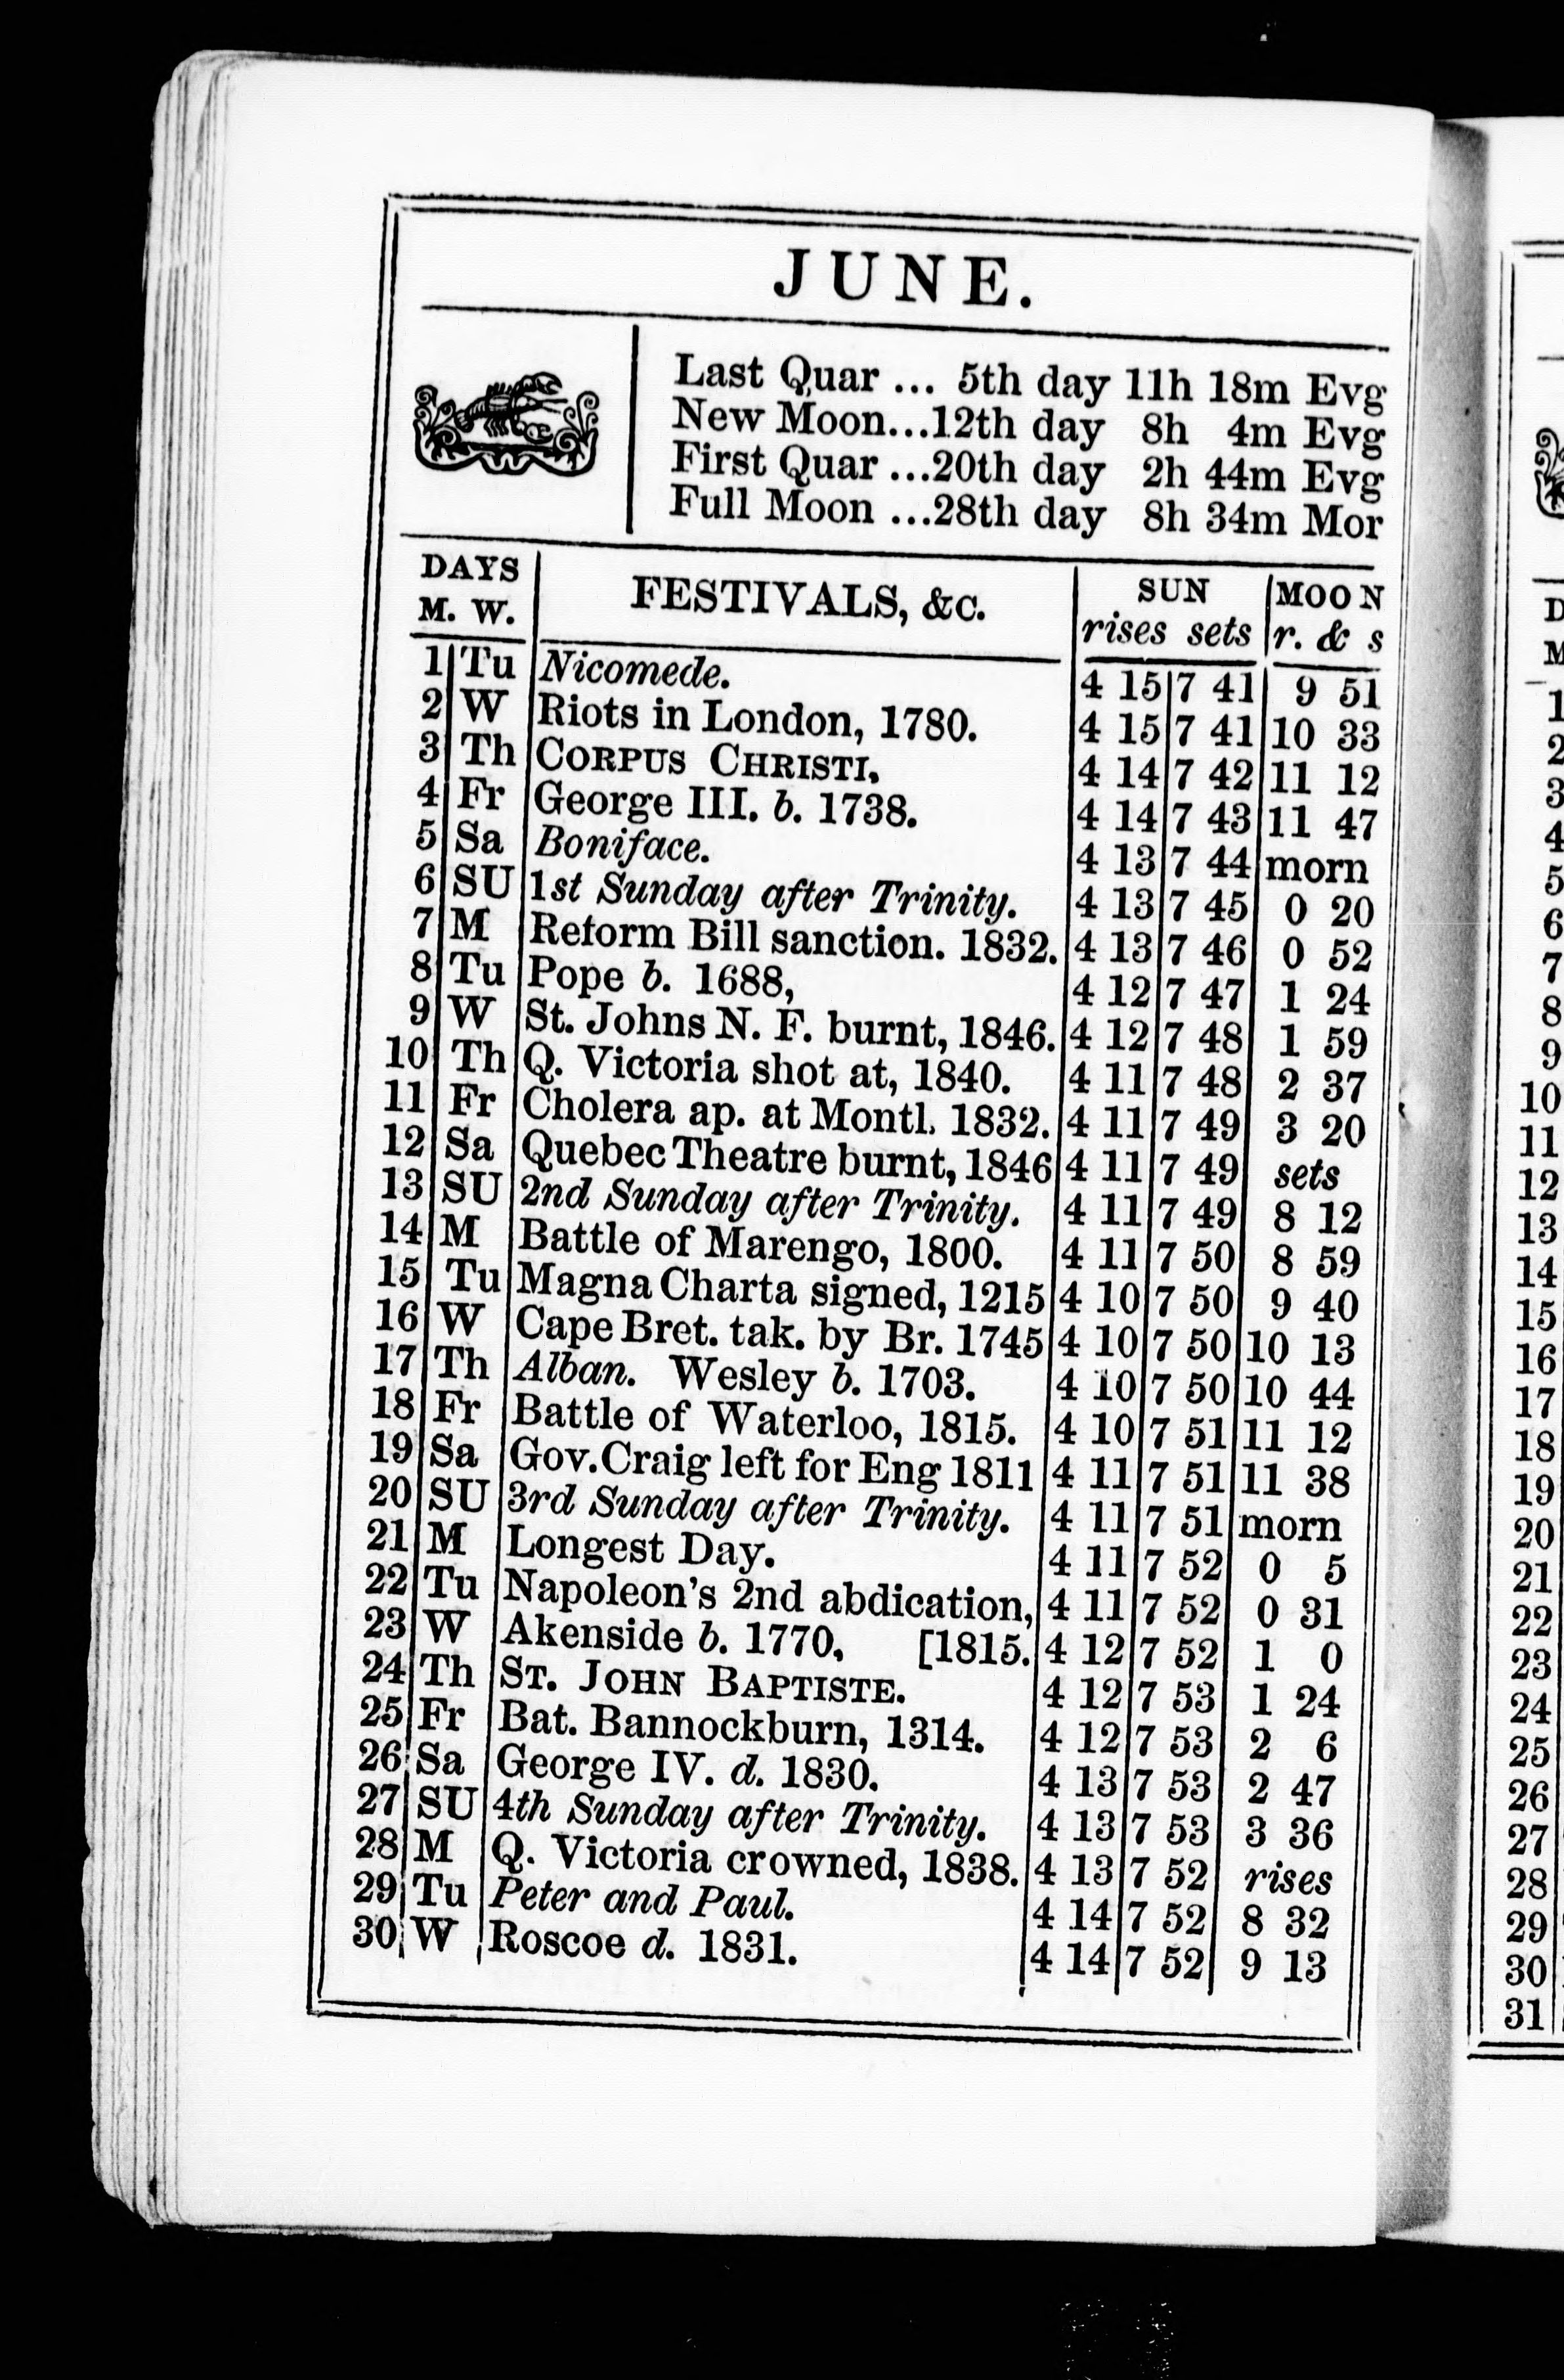 JUNE.
Last Quar ... 5th day 11h 18m Evg
New Moon...12th day 8h 4m Evg
First Quar ...20th day 2h 44m Evg
Full Moon ...28th day 8h 34m Mor
DAYS FESTIVALS, &c. SUN MOON
M. W. rises sets r. & s
1 Tu Nicomede. 4 15 7 41 9 51
2 W Riots in London, 1780. 4 15 7 41 10 33
3 Th CORPUS CHRISTI. 4 14 7 42 11 12
4 Fr George III. b. 1738. 4 14 7 43 11 47
5 Sa Boniface. 4 13 7 44 morn
6 SU 1st Sunday after Trinity. 4 13 7 45 0 20
7 M Reform Bill sanction. 1832. 4 13 7 46 0 52
8 Tu Pope b. 1688, 4 12 7 47 1 24
9 W St. Johns N. F. burnt, 1846. 4 12 7 48 1 59
10 Th Q. Victoria shot at, 1840. 4 11 7 48 2 37
11 Fr Cholera ap. at Montl. 1832. 4 11 7 49 3 20
12 Sa Quebec Theatre burnt, 1846 4 11 7 49 sets
13 SU 2nd Sunday after Trinity. 4 11 7 49 8 12
14 M Battle of Marengo, 1800. 4 11 7 50 8 59
15 Tu Magna Charta signed, 1215 4 10 7 50 9 40
16 W Cape Bret. tak. by Br. 1745 4 10 7 50 10 13
17 Th Alban. Wesley b. 1703. 4 10 7 50 10 44
18 Fr Battle of Waterloo, 1815. 4 10 7 51 11 12
19 Sa Gov. Craig left for Eng 1811 4 11 7 51 11 38
20 SU 3rd Sunday after Trinity. 4 11 7 51 morn
21 M Longest Day. 4 11 7 52 0 5
22 Tu Napoleon's 2nd abdication, 4 11 7 52 0 31
23 W Akenside b. 1770. [1815. 4 12 7 52 1 0
24 Th ST. JOHN BAPTISTE. 4 12 7 53 1 24
25 Fr Bat. Bannockburn, 1314. 4 12 7 53 2 6
26 Sa George IV. d. 1830. 4 13 7 53 2 47
27 SU 4th Sunday after Trinity. 4 13 7 53 3 36
28 M Q. Victoria crowned, 1838. 4 13 7 52 rises
29 Tu Peter and Paul. 4 14 7 52 8 32
30 W Roscoe d. 1831. 4 14 7 52 9 13
D
M
1
2
3
4
5
6
7
8
9
10
11
12
13
14
15
16
17
18
19
20
21
22
23
24
25
26
27
28
29
30
31